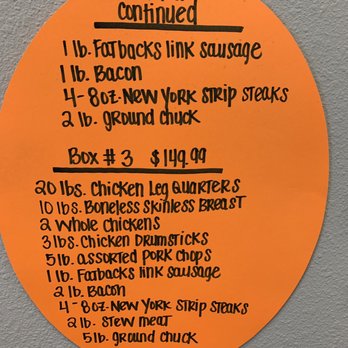 continued
1 lb. Fatbacks link sausage
1 lb. Bacon
4-8oz. New York Strip Steaks
2 lb. ground chuck
Box #3 $149.99
20 lbs. Chicken Leg Quarters
10 lbs. Boneless Skinless Breast
2 Whole Chickens
3 lbs. Chicken Drumsticks
5 lb. assorted pork chops
1 lb. Fatbacks link sausage
2 lb. Bacon
4-8oz. New York Strip Steaks
2 lb. stew meat
5 lb. ground chuck